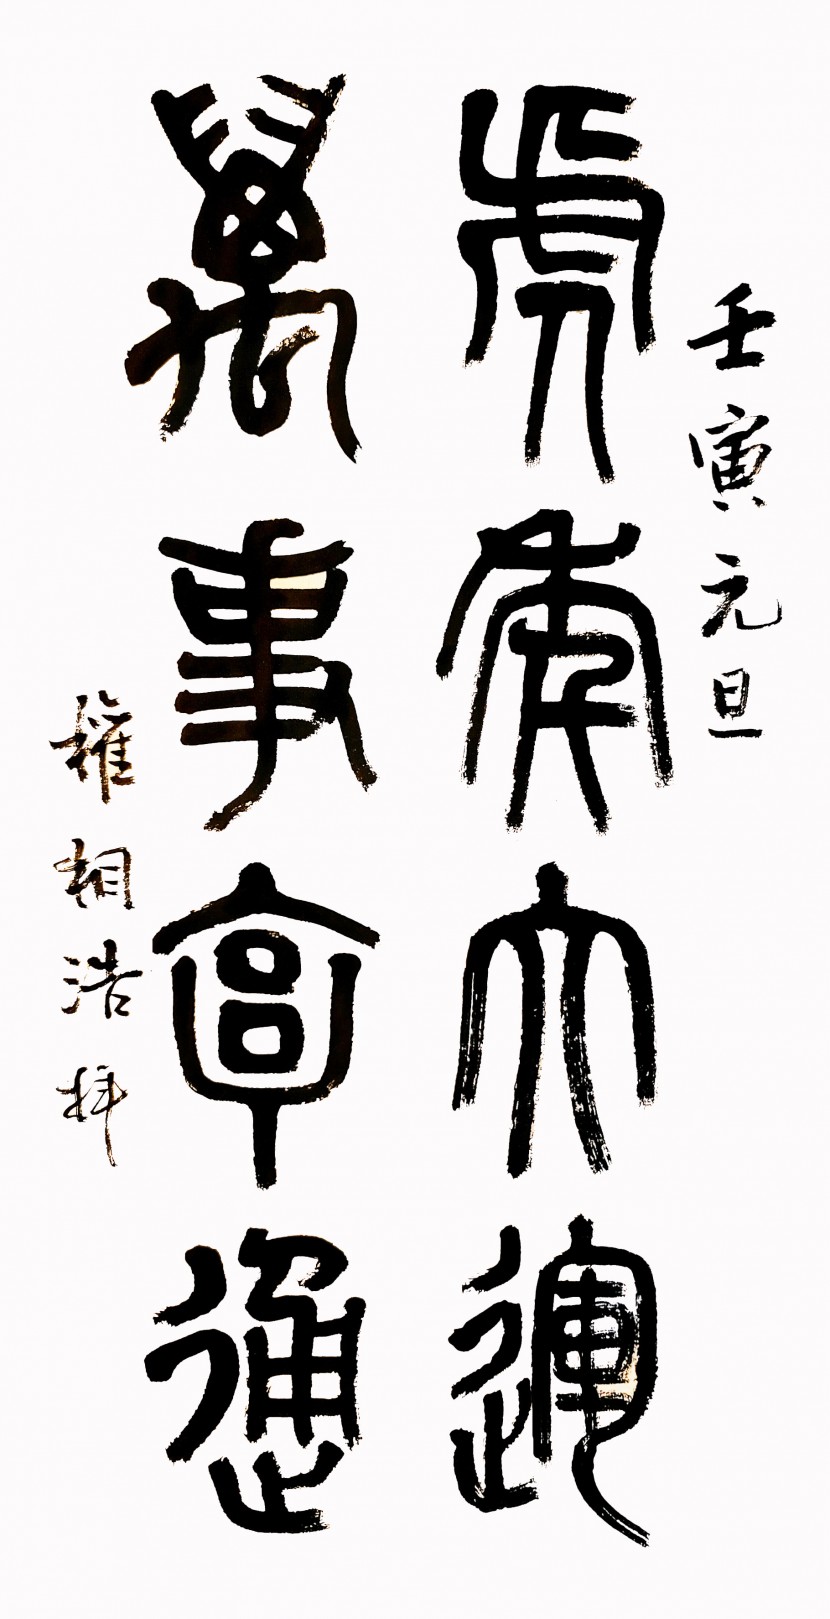 壬寅元旦
虎年大運
萬事亨通
權相浩拜